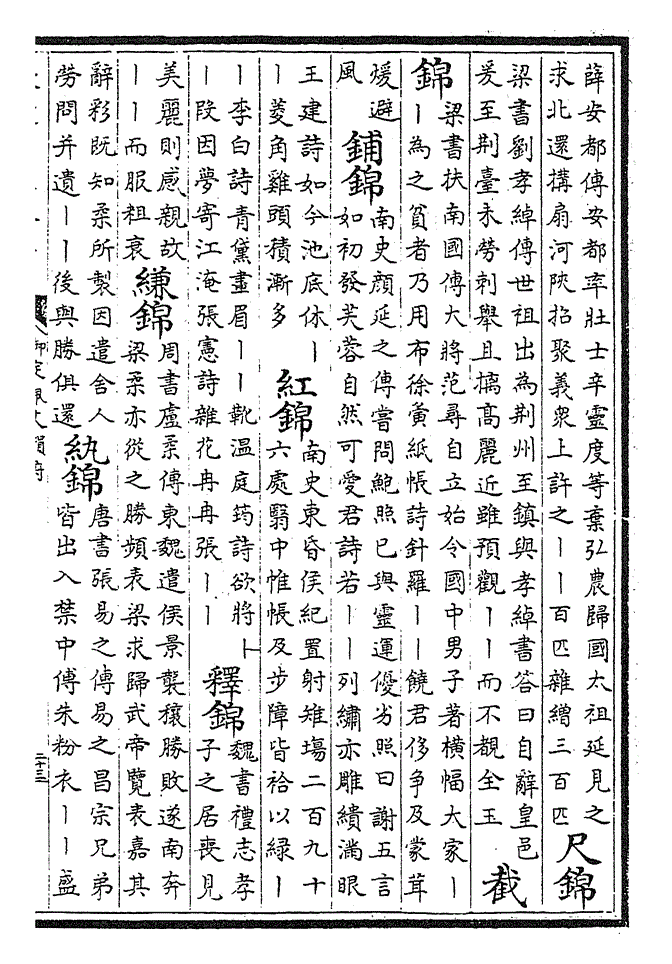 薛安都傳安都率壯士辛靈度等棄弘農歸國太祖延見之
求北還構扇河陝招聚義衆上許之丨丨百匹雜繒三百匹
尺錦
梁書劉孝綽傳世祖出為荆州至鎮與孝綽書答曰自辭皇邑
爰至荆臺未勞刺舉且摛高麗近雖預觀丨丨而不覩全玉
截
錦
梁書扶南國傳大將范尋自立始令國中男子著橫幅大家丨
丨為之貧者乃用布徐夤紙帳詩針羅丨丨饒君侈争及蒙茸
煖避
風
鋪錦
南史顔延之傳嘗問鮑照已與靈運優劣照曰謝五言
如初發芙蓉自然可愛君詩若丨丨列繡亦雕繢滿眼
王建詩如今池底休丨
丨菱角雞頭積漸多
紅錦
南史東昏侯紀置射雉塲二百九十
六處翳中惟帳及步障皆袷以緑丨
丨李白詩青黛畫眉丨丨靴温庭筠詩欲將丨
丨段因夢寄江淹張憲詩雜花冉冉張丨丨
釋錦
魏書禮志孝
子之居喪見
美麗則感親故
丨丨而服祖衰
縑錦
周書盧柔傳東魏遣侯景襲穰勝敗遂南奔
梁柔亦從之勝頻表梁求歸武帝覽表嘉其
辭彩既知柔所製因遣舍人
勞問并遺丨丨後與勝俱還
紈錦
唐書張易之傳易之昌宗兄弟
皆出入禁中傅朱粉衣丨丨盛
二十三